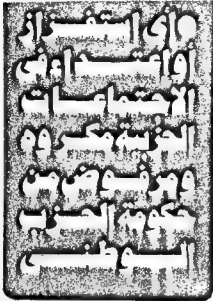 أى استفزاز
أو اعتداء فى
الاجتماعات
مكروه
ومرفوض من
حكومة الحزب
الوطنى